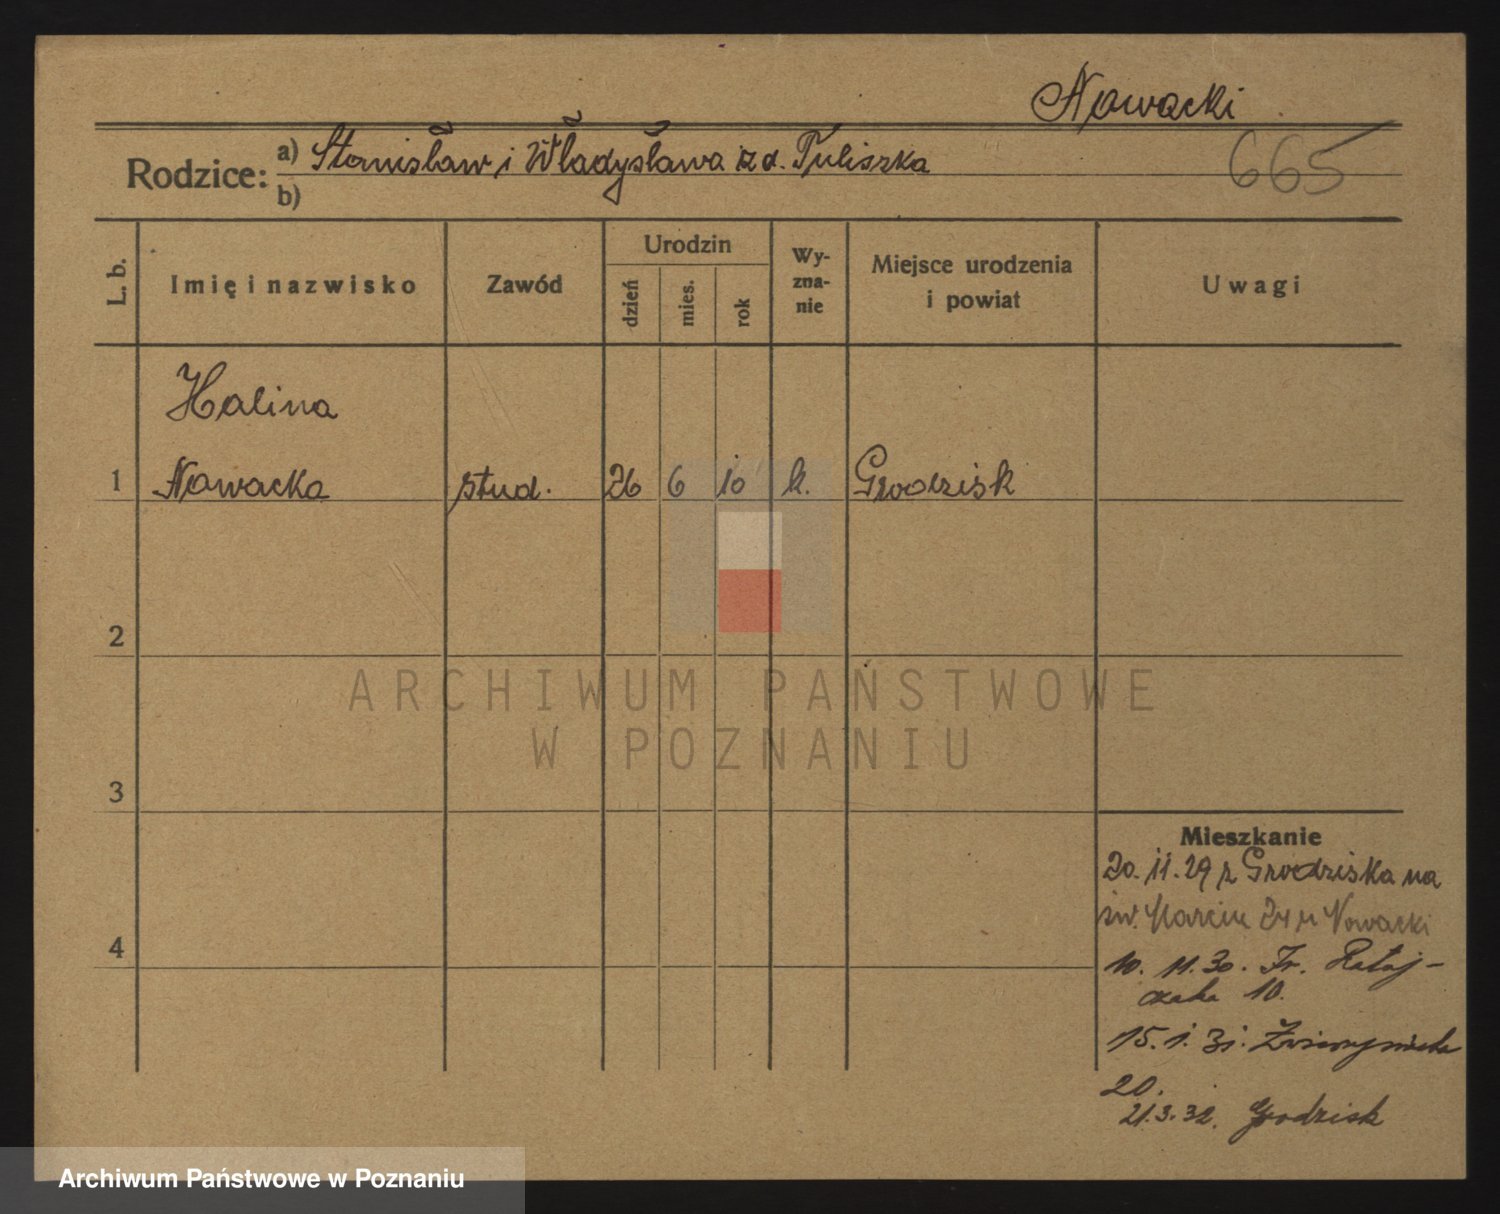 Nowacki
Rodzice: a) Stanisław i Władysława z d. Tuliszka
b)
665
L. b.
Imię i nazwisko
Zawód
Urodzin
dzień
mies.
rok
Wy-
zna-
nie
Miejsce urodzenia
i powiat
Uwagi
Halina
1 Nowacka stud. 26 6 10 k. Grodzisk
2
3
4
ARCHIWUM PAŃSTWOWE
W POZNANIU
Mieszkanie
20. 11. 29 z Grodziska na
św. Marcin 24 u Nowacki
10. 11. 30. Fr. Rataj-
czaka 10.
15. 1. 31. Zwierzyniecka
20.
21.3.32. Grodzisk
Archiwum Państwowe w Poznaniu